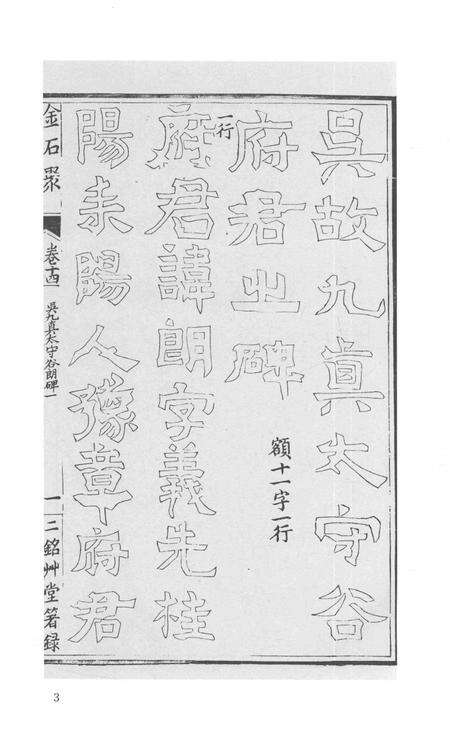 吳故九真太守谷
府君之碑
額十一字一行
一行
府君諱朗字義先桂
陽耒陽人豫章府君
金石聚
卷十四 吳九真太守谷朗碑一
一 二銘艸堂箸錄
3